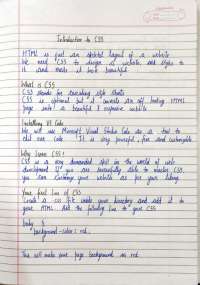 Introduction to CSS
HTML is just an skeletal layout of a website.
We need CSS to design a website, add styles to
it and make it look beautiful.
What is CSS
CSS stands for Cascading style sheets
CSS is optional but it converts an off looking HTML
page into a beautiful & responsive website
Installing VS Code
We will use Microsoft Visual Studio Code as a tool to
edit our code. It is very powerful, free and customizable.
Why learn CSS?
CSS is a very demanded skill in the world of web
development. If you are successfully able to master CSS,
you can customize your website as per your liking.
Your first line of CSS
Create a .css file inside your directory and add it to
your HTML. Add the following line to your CSS
body {
background-color: red;
}
This will make your page background as red.